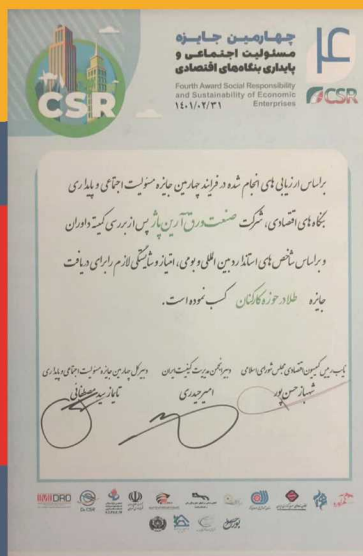 CSR
چهارمین جایزه
مسئولیت اجتماعی و
پایداری بنگاه‌های اقتصادی
Fourth Award Social Responsibility
and Sustainability of Economic
۱۴۰۱/۰۲/۳۱ Enterprises
۴
CSR
براساس ارزیابی های انجام شده در فرایند چهارمین جایزه مسئولیت اجتماعی و پایداری
بنگاه های اقتصادی، شرکت صنعت ورق آرین پاژ پس از بررسی کمیته داوران
و براساس شاخص های استاندارد بین المللی و بومی، امتیاز و شایستگی لازم را برای دریافت
جایزه طلا در حوزه کارکنان کسب نموده است.
نایب رییس کمیسیون اقتصادی مجلس شورای اسلامی
شهباز حسن پور
دبیر انجمن مدیریت کیفیت ایران
امیر حیدری
دبیر کل چهارمین جایزه مسئولیت اجتماعی و پایداری
تایماز سید مصطفائی